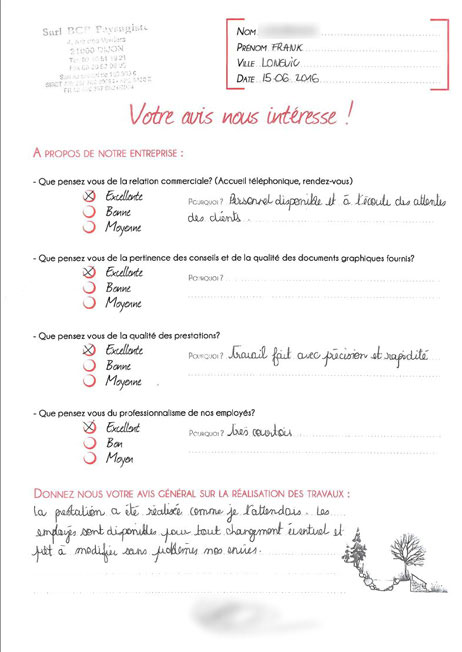 Sarl BCP Paysagiste
21000 DIJON
NOM
PRÉNOM FRANK
VILLE LONGVIC
DATE 15-06-2016
Votre avis nous intéresse !
A PROPOS DE NOTRE ENTREPRISE :
- Que pensez vous de la relation commerciale? (Accueil téléphonique, rendez-vous)
Excellente
Bonne
Moyenne
POURQUOI ? Personnel disponible et à l'écoute des attentes
des clients.
- Que pensez vous de la pertinence des conseils et de la qualité des documents graphiques fournis?
Excellente
Bonne
Moyenne
POURQUOI ?
- Que pensez vous de la qualité des prestations?
Excellente
Bonne
Moyenne
POURQUOI ? travail fait avec précision et rapidité
- Que pensez vous du professionnalisme de nos employés?
Excellent
Bon
Moyen
POURQUOI ? très courtois
DONNEZ NOUS VOTRE AVIS GÉNÉRAL SUR LA RÉALISATION DES TRAVAUX :
la prestation a été réalisée comme je l'attendais. Les
employés sont disponibles pour tout changement éventuel et
prêt à modifier sans problèmes nos envies.